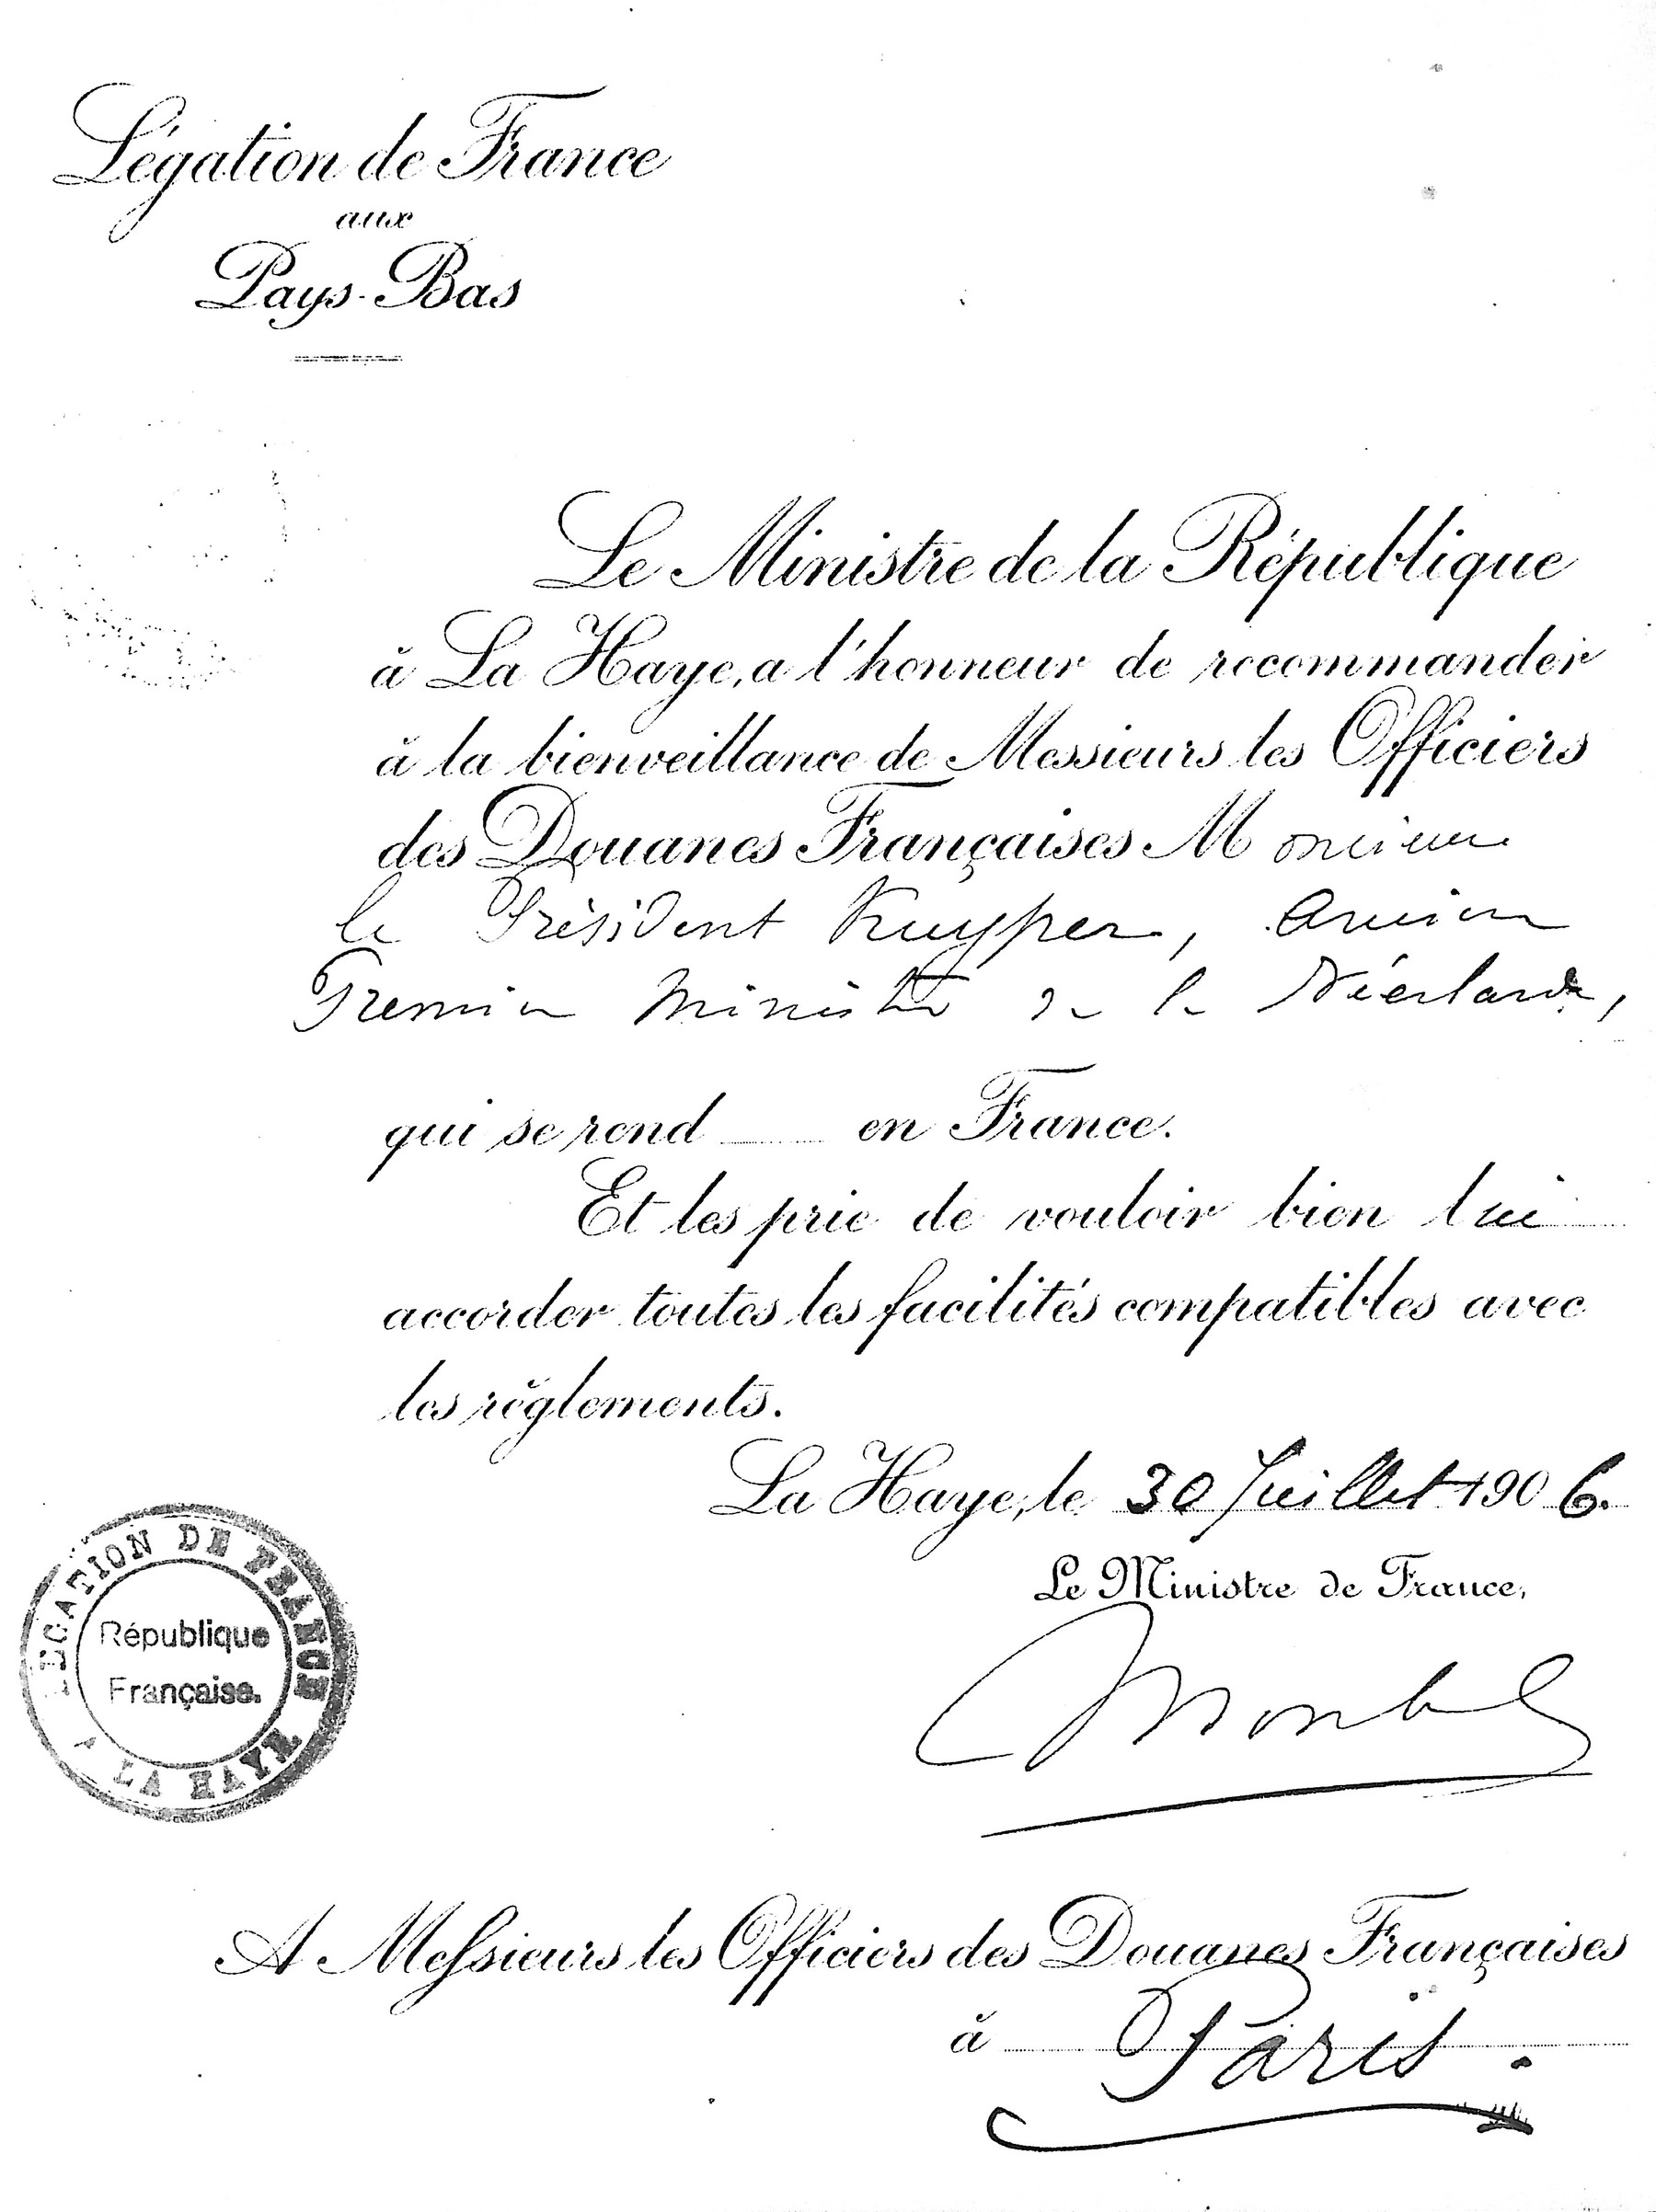 Légation de France
aux
Pays-Bas
Le Ministre de la République
à La Haye, a l'honneur de recommander
à la bienveillance de Messieurs les Officiers
des Douanes Françaises Monsieur
le Président Kuyper, Ancien
Premier Ministre de la Néerlande,
qui se rend en France.
Et les prie de vouloir bien lui
accorder toutes les facilités compatibles avec
les règlements.
La Haye, le 30 Juillet 1906.
Le Ministre de France,
Monbel
LEGATION DE FRANCE
République
Française.
LA HAYE
A Messieurs les Officiers des Douanes Françaises
à Paris.